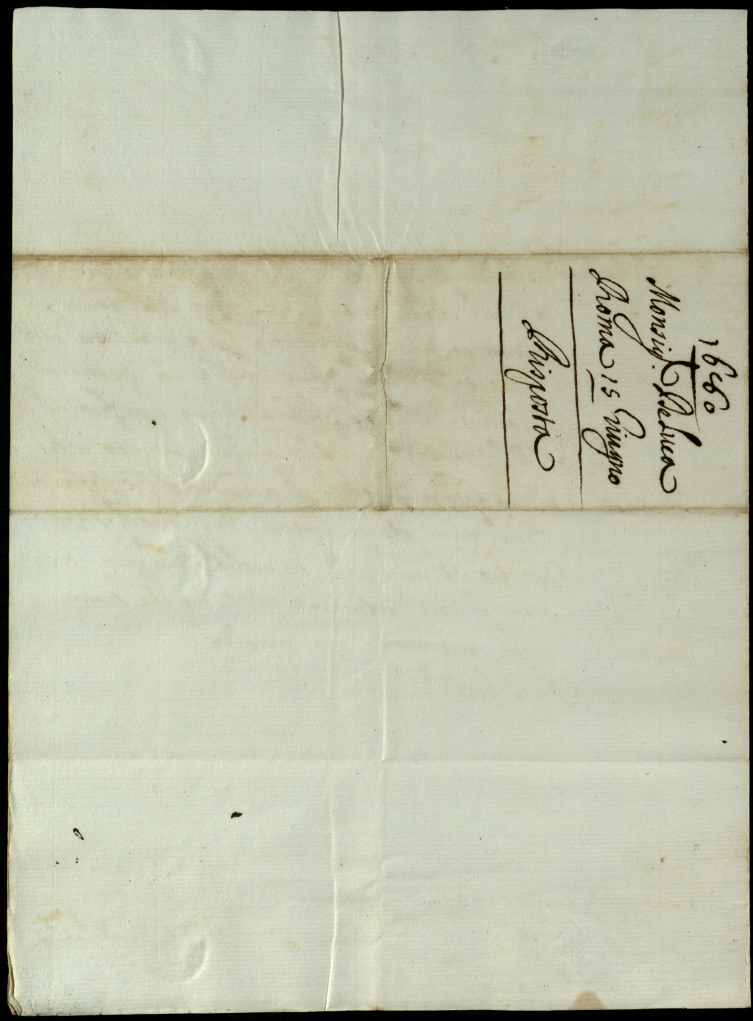 1680
Monsig.r De Luca
Roma 15 Giugno
Risposta